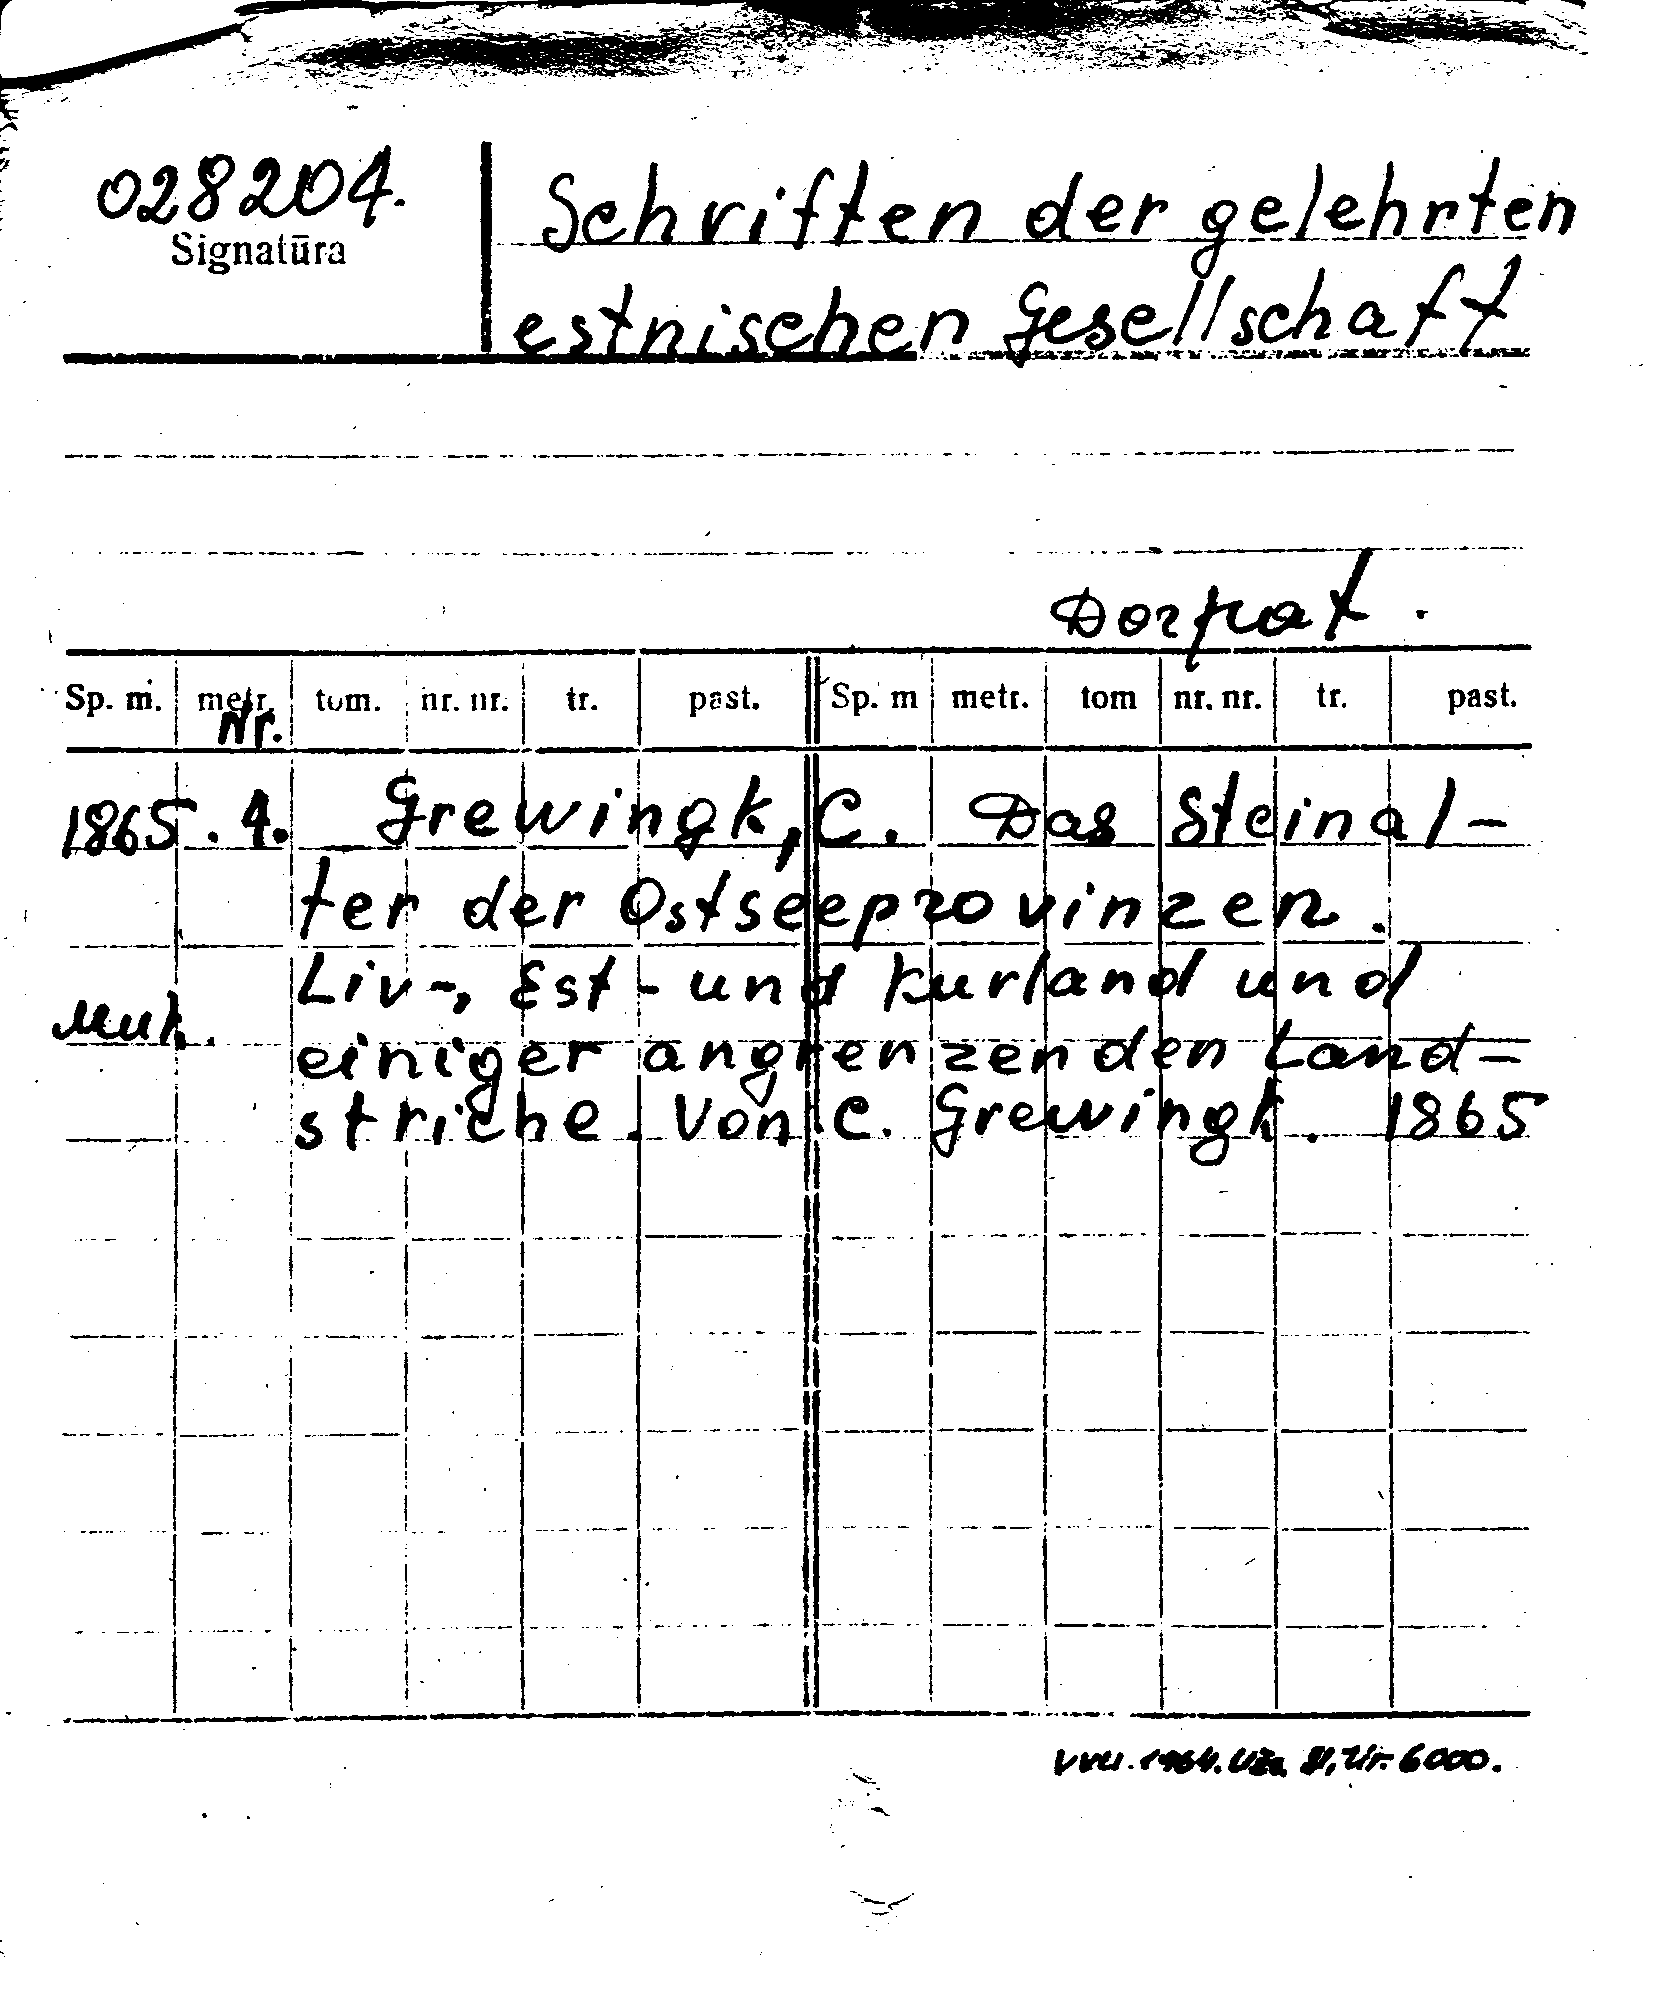 028204.
Signatūra
Schriften der gelehrten
estnischen Gesellschaft
Dorpat.
Sp. m. metr. tom. nr. nr. tr. past. Sp. m metr. tom nr. nr. tr. past.
Nr.
1865. 4. Grewingk, C. Das Steinal-
ter der Ostseeprovinzen.
Liv-, Est- und Kurland und
Muk.
einiger angrenzenden Land-
striche. Von C. Grewingk. 1865
VVU. 1964. Už. 81, Tir. 6000.